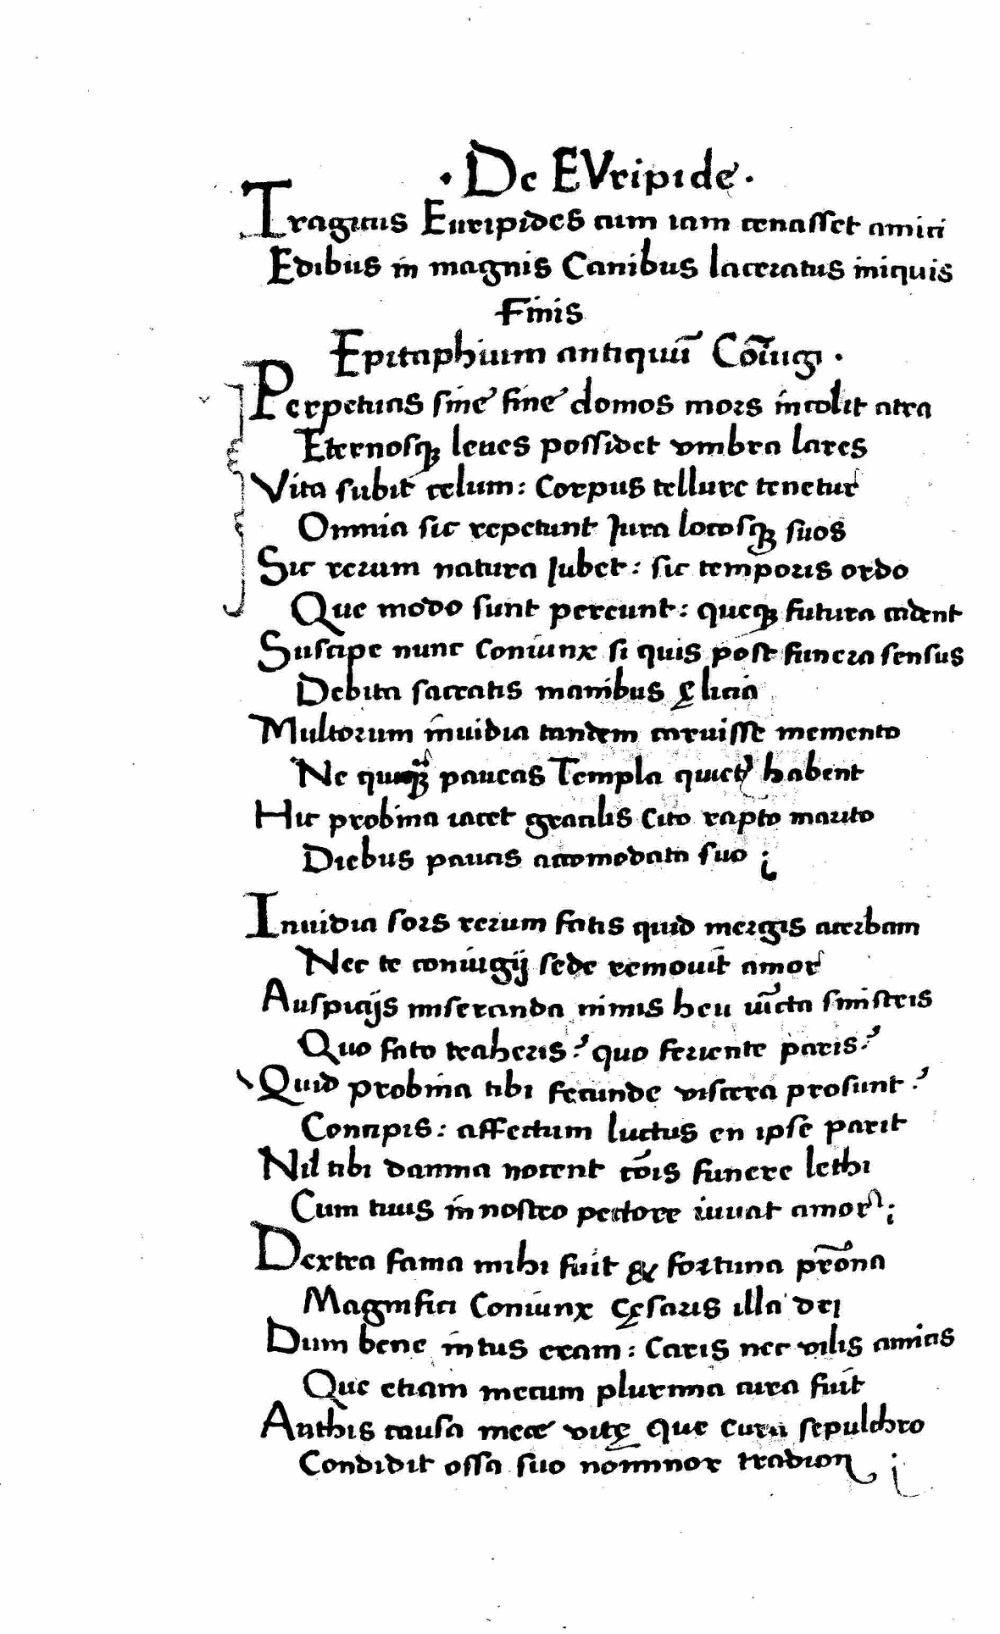 · De EVripide ·
Tragicus Euripides cum iam cenasset amici
Edibus in magnis Canibus laceratus iniquis
Finis
Epitaphium antiquũ Coĩugi ·
Perpetuas sine fine domos mors incolit atra
Eternosqꝫ leues possidet vmbra lares
Vita subit celum: Corpus tellure tenetur
Omnia sic repetunt Jura locosqꝫ suos
Sic rerum natura Jubet: sic temporis ordo
Que modo sunt pereunt: queqꝫ futura cadent
Suscipe nunc Coniunx si quis post funera sensus
Debita sacratis manibus ę licia
Multorum inuidia tandem caruisse memento
Ne paucas Templa quiet habent
Hic probina iacet gracilis Cito rapto marito
Diebus paucis accomodata suo ;
Inuidia sors rerum fatis quid mergis acerbam
Nec te coniugij sede remouit amor
Auspicijs miseranda nimis heu uĩcta sinistris
Quo fato traheris? quo feriente paris?
Quid probina tibi fecunde viscera prosunt?
Concipis: affectum luctus en ipse parit
Nil tibi damna nocent cõis funere lethi
Cum tuis in nostro pectore iuuat amor ;
Dextra fama mihi fuit & fortuna prõna
Magnifici Coniunx Cęsaris illa dei
Dum bene intus eram: Caris nec vilis amicis
Que etiam mecum plurima cura fuit
Anthis causa mee vitę que cura sepulchro
Condidit ossa suo nominor ;